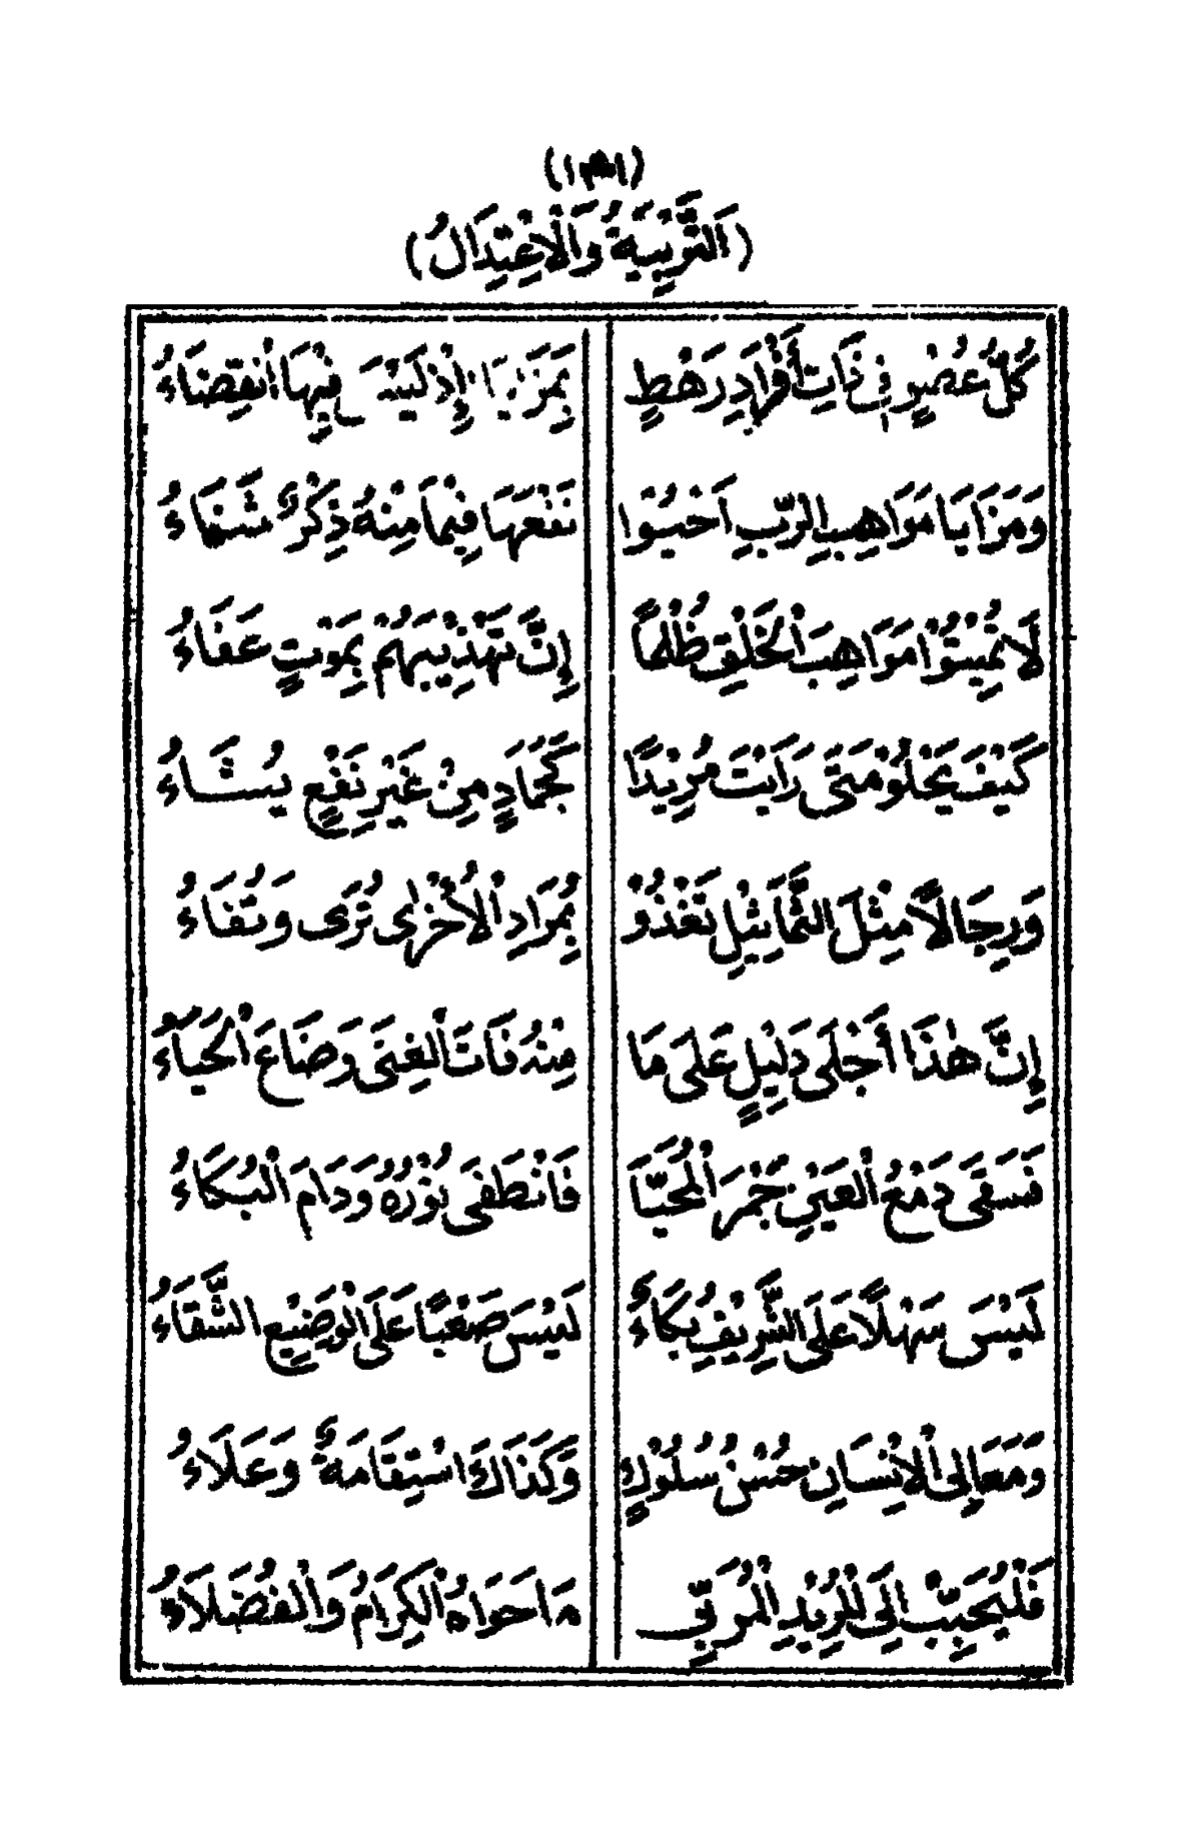 (اَلتَّرْبِيَةُ وَالْاِعْتِدَالُ)
كُلُّ عُضْوٍ فِي ذَاتِ أَفْرَادِ رَهْطٍ بِمَزَايَا إِذْ لَيْسَ فِيْهَا انْقِضَاءُ
وَمَزَايَا مَوَاهِبِ الرَّبِّ اَحْيُوْا نَفْعَهَا فِيْمَا مِنْهُ ذِكْرٌ شَنْمَاءُ
لَا تُمِيْتُوْا مَوَاهِبَ الْخَلْقِ ظُلْمًا إِنَّ تَهْذِيْبَهُمْ بِمَوْتٍ عَفَاءُ
كَيْفَ يَخْلُوْ مَتَى رَاَيْتَ مُرِيْدًا كَجَمَادٍ مِنْ غَيْرِ نَفْعٍ يُشَاءُ
وَرِجَالًا مِثْلَ التَّمَاثِيْلِ تَغْذُوْ بِمُرَادِ الْأُخْرٰى تُرَى وَتُفَاءُ
إِنَّ هٰذَا أَجْلَى دَلِيْلٍ عَلَى مَا مِنْهُ فَاتَ الْغِنَى وَضَاعَ الْحَيَاءُ
فَسَقَى دَمْعُ الْعَيْنِ جَمْرَ الْمُحَيَّا فَانْطَفَى نُوْرُهُ وَدَامَ الْبُكَاءُ
لَيْسَ سَهْلًا عَلَى الشَّرِيْفِ بُكَاءٌ لَيْسَ صَعْبًا عَلَى الْوَضِيْعِ الشَّقَاءُ
وَمَعَالِى الْاِنْسَانِ حُسْنُ سُلُوْكٍ وَكَذَاكَ اسْتِقَامَةٌ وَعَلَاءُ
فَلْيُحَبِّبْ اِلَى الْمُرِيْدِ الْمُرَبِّي مَا حَوَاهُ الْكِرَامُ وَالْفُضَلَاءُ